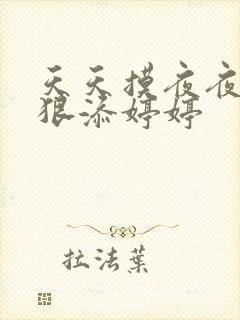 天天摸夜夜
狠添婷婷
拉法葉